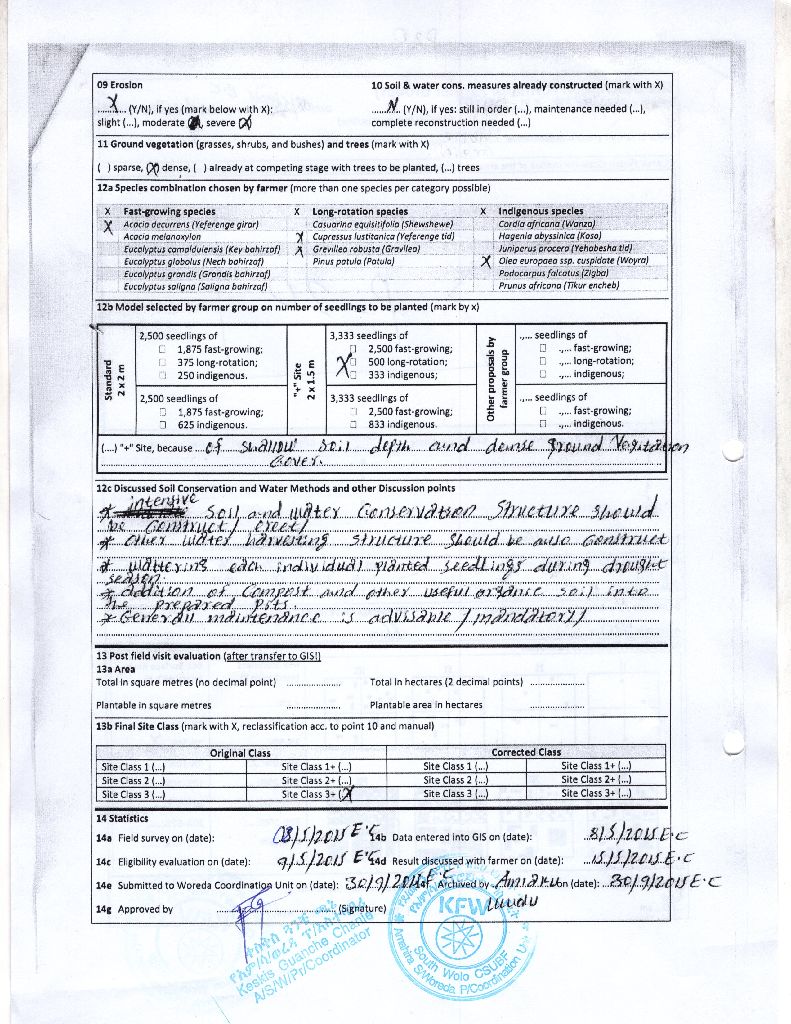 09 Erosion 10 Soil & water cons. measures already constructed (mark with X)
(Y/N), if yes (mark below with X): N (Y/N), if yes: still in order (...), maintenance needed (...),
slight (...), moderate severe (X) complete reconstruction needed (...)
11 Ground vegetation (grasses, shrubs, and bushes) and trees (mark with X)
( ) sparse, (X) dense, ( ) already at competing stage with trees to be planted, (...) trees
12a Species combination chosen by farmer (more than one species per category possible)
X Fast-growing species X Long-rotation species X Indigenous species
X Acacia decurrens (Yeferenge girar) Casuarina equisitifolia (Shewshewe) Cordia africana (Wanza)
Acacia melanoxylon X Cupressus lustitanica (Yeferenge tid) Hagenia abyssinica (Koso)
Eucalyptus camaldulensis (Key bahirzaf) X Grevillea robusta (Gravilea) Juniperus procera (Yehabesha tid)
Eucalyptus globolus (Nech bahirzaf) Pinus patula (Patula) X Olea europaea ssp. cuspidate (Woyra)
Eucalyptus grandis (Grandis bahirzaf) Podocarpus falcatus (Zigba)
Eucalyptus saligna (Saligna bahirzaf) Prunus africana (Tikur encheb)
12b Model selected by farmer group on number of seedlings to be planted (mark by x)
Standard 2 x 2 m
2,500 seedlings of
1,875 fast-growing;
375 long-rotation;
250 indigenous.
2,500 seedlings of
1,875 fast-growing;
625 indigenous.
"+" Site 2 x 1.5 m
3,333 seedlings of
2,500 fast-growing;
X 500 long-rotation;
333 indigenous;
3,333 seedlings of
2,500 fast-growing;
833 indigenous.
Other proposals by farmer group
.,... seedlings of
.,... fast-growing;
.,... long-rotation;
.,... indigenous;
.,... seedlings of
.,... fast-growing;
.,... indigenous.
(...) "+" Site, because of shallow soil depth and dense ground Vegetation
Cover.
12c Discussed Soil Conservation and Water Methods and other Discussion points
* intensive Soil and water Conservation Structure should
be Construct/ erect/
* Other water harvesting structure should be also Construct
* wattering each individual planted seedlings during drought
season.
* addition of Compost and other useful organic soil into
the prepared pits.
* Generall maintenance is advisable / mandatory/
13 Post field visit evaluation (after transfer to GIS!)
13a Area
Total in square metres (no decimal point) .................. Total in hectares (2 decimal points) ..................
Plantable in square metres .................. Plantable area in hectares ..................
13b Final Site Class (mark with X, reclassification acc. to point 10 and manual)
Original Class Corrected Class
Site Class 1 (...) Site Class 1+ (...) Site Class 1 (...) Site Class 1+ (...)
Site Class 2 (...) Site Class 2+ (...) Site Class 2 (...) Site Class 2+ (...)
Site Class 3 (...) Site Class 3+ (X) Site Class 3 (...) Site Class 3+ (...)
14 Statistics
14a Field survey on (date): 08/5/2015 E.C 14b Data entered into GIS on (date): 8/5/2015 E.C
14c Eligibility evaluation on (date): 9/5/2015 E.C 14d Result discussed with farmer on (date): 15/5/2015 E.C
14e Submitted to Woreda Coordination Unit on (date): 30/9/2015 E.C Archived by on (date): 30/9/2015 E.C
14g Approved by (Signature)
Keskis Guanche Chanie
A/S/W/Pr/Coordinator
KFW
South Wolo CSUBF